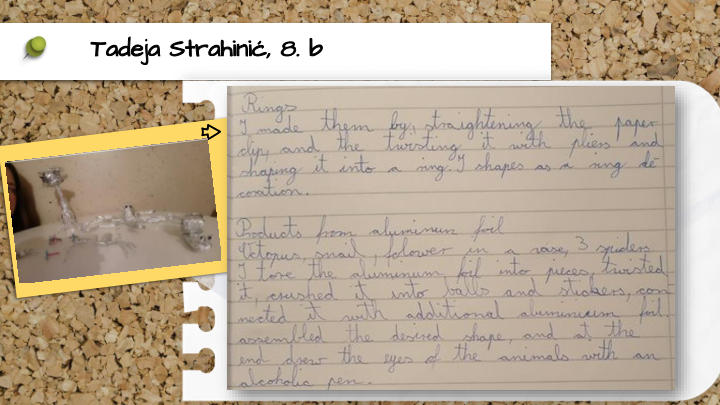 Tadeja Strahinić, 8. b
Rings
I made them by, straightening the paper
clip, and the twisting it with pliers and
shaping it into a ring. I shapes as a ring de
coration.
Products from aluminum foil
Octopus, snail, folower in a vase, 3 spiders
I tore the aluminum foil into pieces, twisted
it, crushed it into balls and stickers, con
nected it with additional aluminium foil.
assembled the desired shape, and at the
end drew the eyes of the animals with an
alcoholic pen.